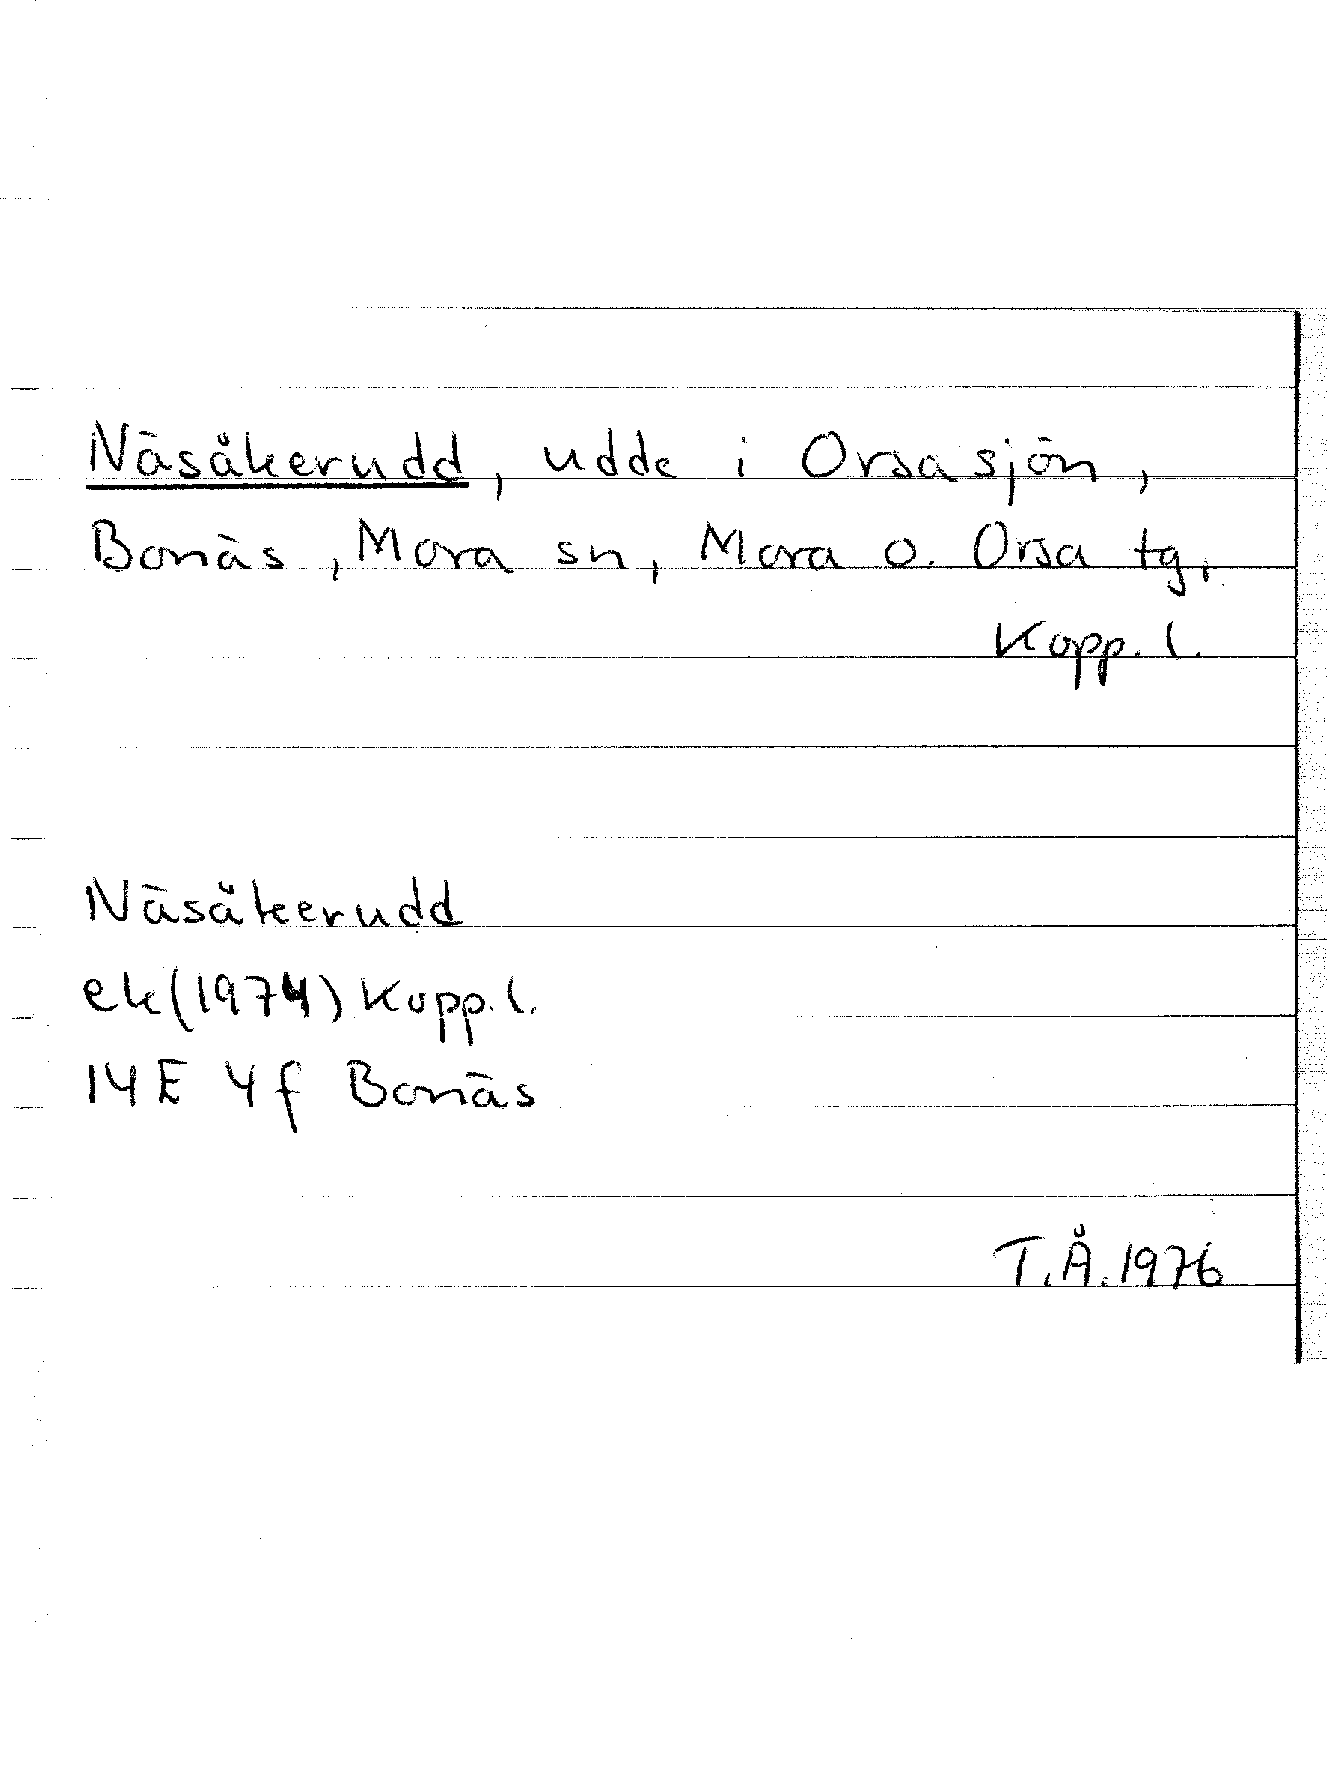 Näsåkerudd, udde i Orsasjön,
Bonäs, Mora sn, Mora o. Orsa tg,
Kopp. l.
Näsåkerudd
ek(1974) Kopp. l.
14E 4f Bonäs
T.Å. 1976